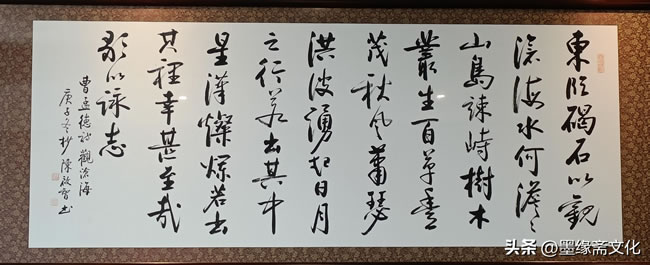 東臨碣石以觀
滄海水何澹〻
山島竦峙樹木
叢生百草豐
茂秋風蕭瑟
洪波湧起日月
之行若出其中
星漢燦爛若出
其裡幸甚至哉
歌以詠志
曹孟德詩 觀滄海
庚子冬抄 陳啟智書
头条 @墨缘斋文化